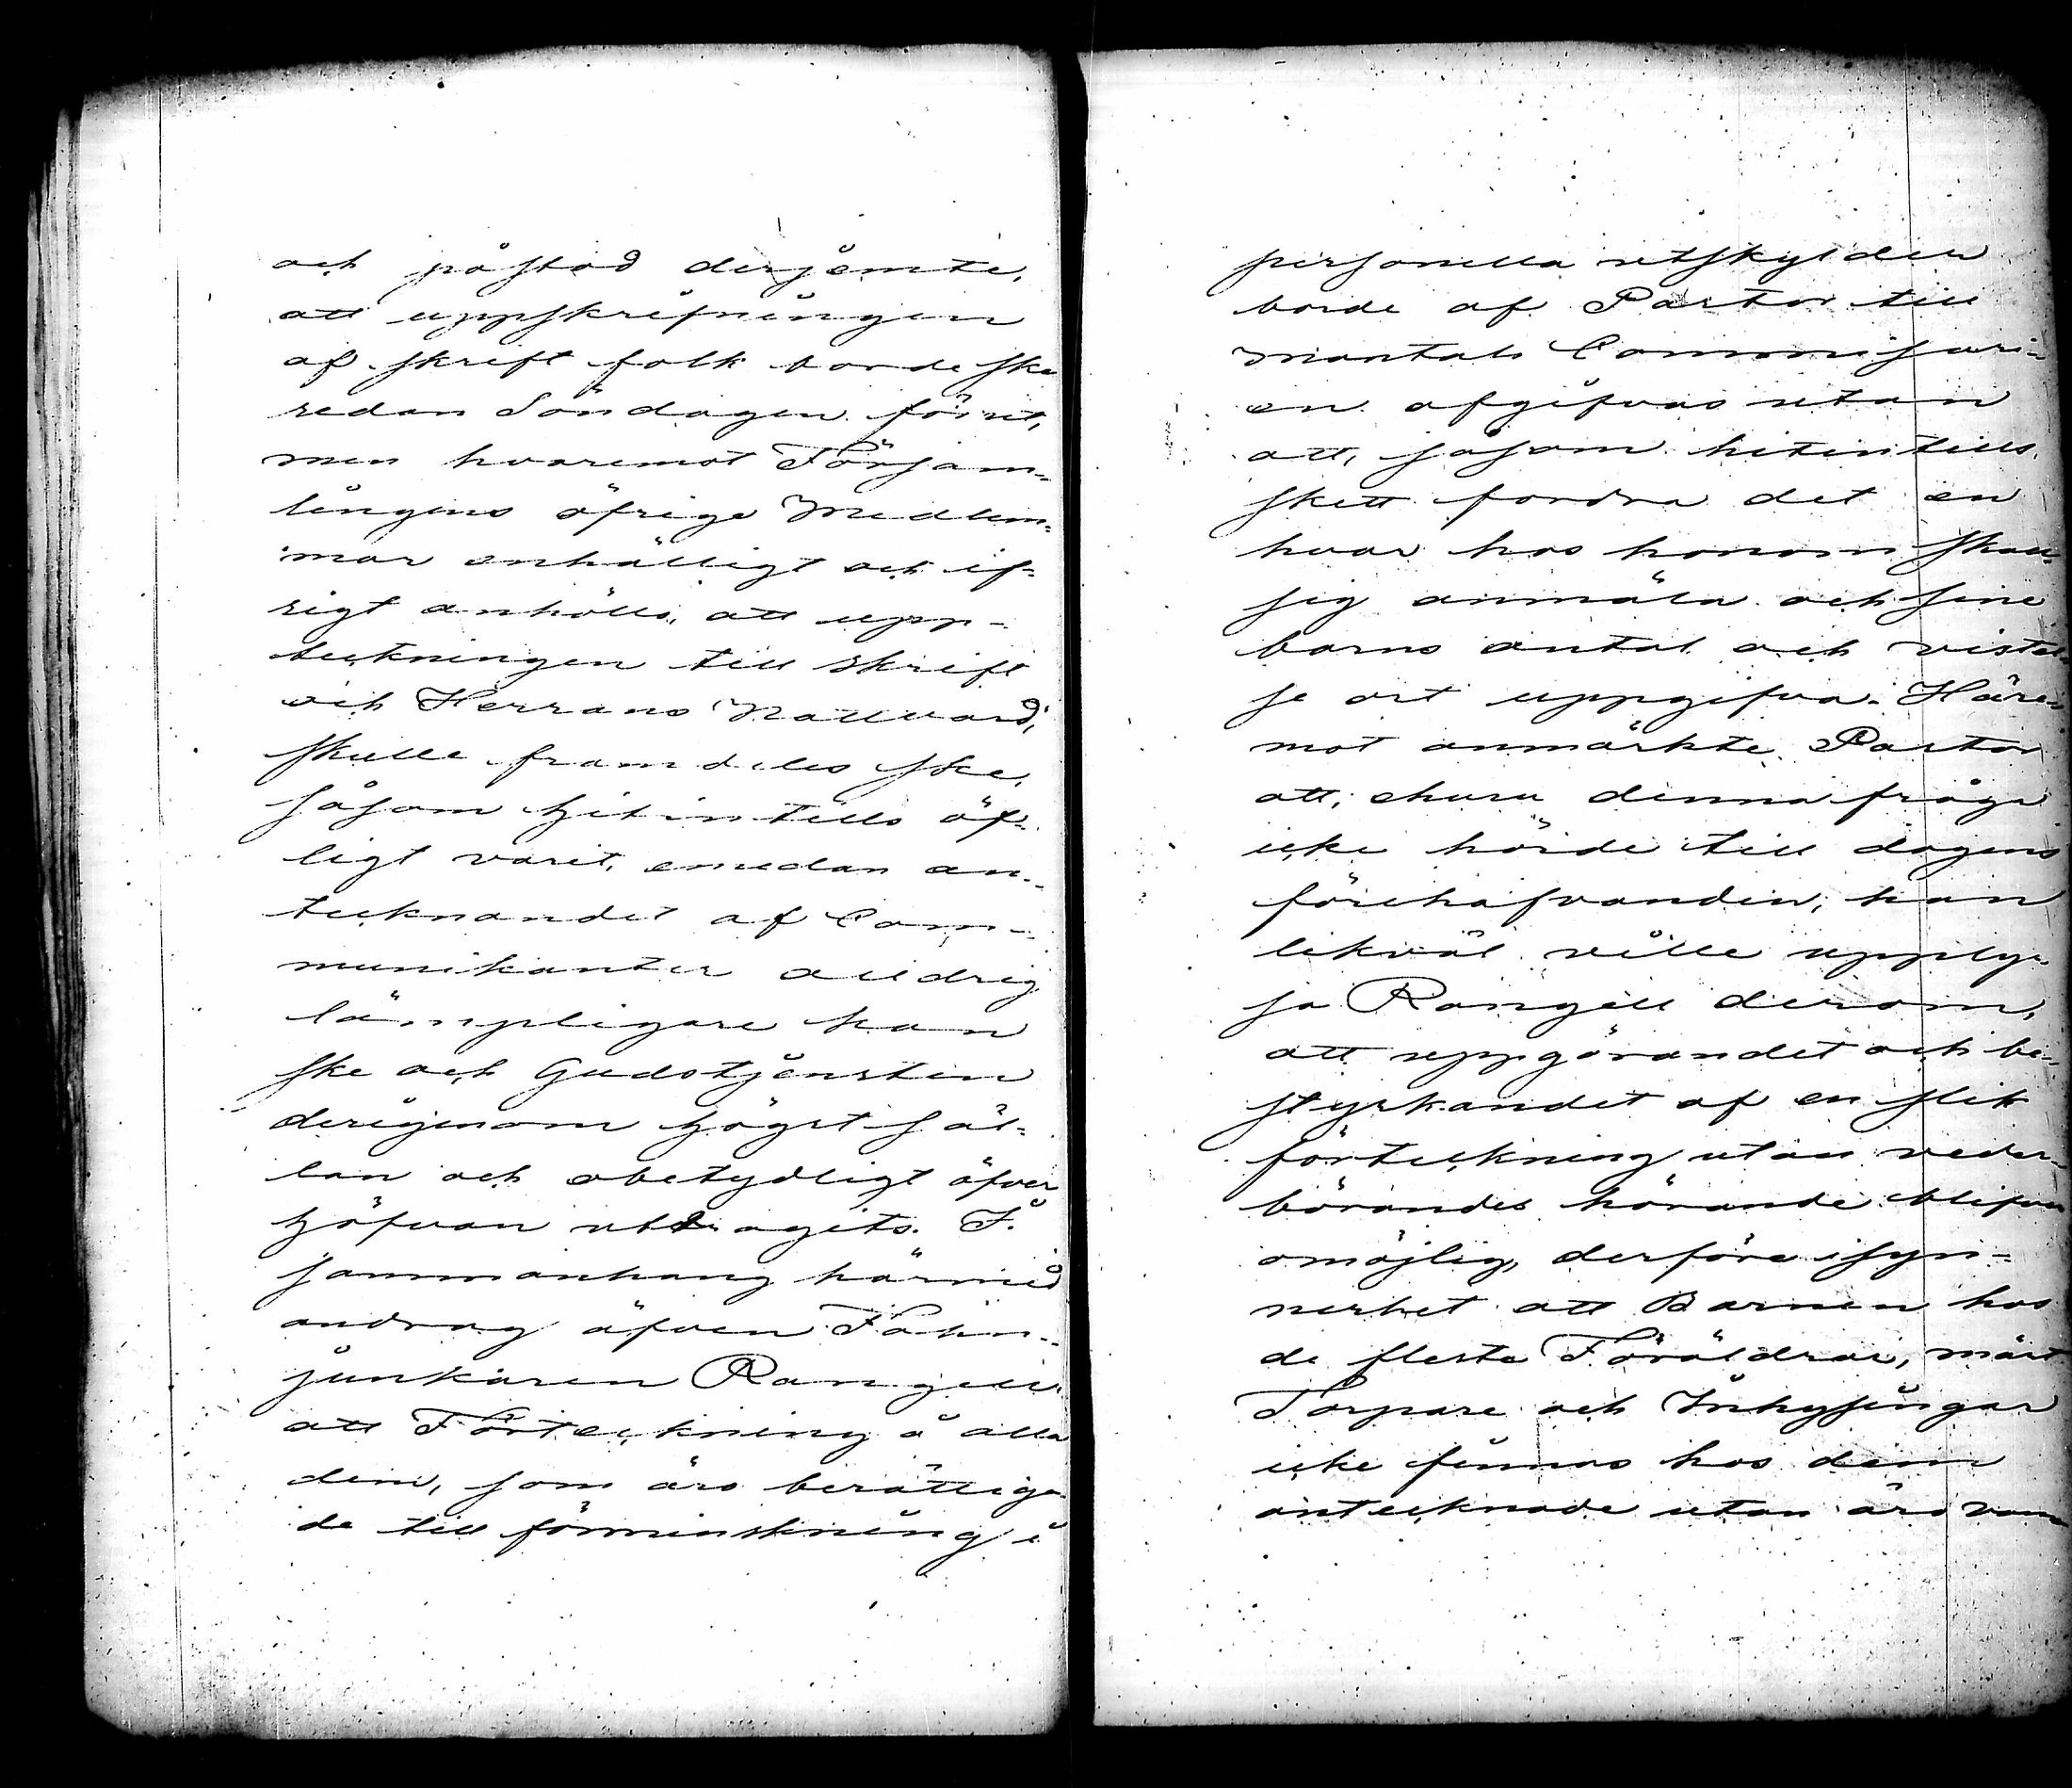 och påstod derjemte,
att uppskrifningen
af skrift folk borde ske
redan Söndagen förut,
men hvaremot Församl-
lingens öfrige Medlem-
mar enhälligt och if-
rigt anhöllo, att upp-
teckningen till skrift
och Herrans Nattvard,
skulle framdeles ske,
såsom hitintills öf-
ligt varit, emedan an-
tecknandet af Com-
munikanter alldrig
lämpligare kan
ske och Gudstjensten
derigenom högst säl-
lan och obetydligt öfver
höfvan utdragits. I
sammanhang härmed
androg äfven Fahn-
junkaren Rangell,
att Förteckning å alla
dem, som äro berättiga-
de till förminskning i
personella utskylder
borde af Pastor till
mantals Commissari-
en afgifvas utan
att, såsom hitintills
skett fordra det en
hvar hos honom skall
sig anmäla och sine
barns antal och vistel-
se ort uppgifva. Häre-
mot anmärkte Pastor
att, ehuru denna fråga
icke hörde till dagens
förehafvanden, han
likväl ville upply-
sa Rangell derom,
att uppgörandet och be-
styrkandet af en slik
förteckning utan veder-
börandes hörande blefve
omöjlig, derföre isyn-
nerhet att Barnen hos
de fleste Föräldrar, mäst
Torpare och Inhysingar
icke finnas hos dem
antecknade utan äro van